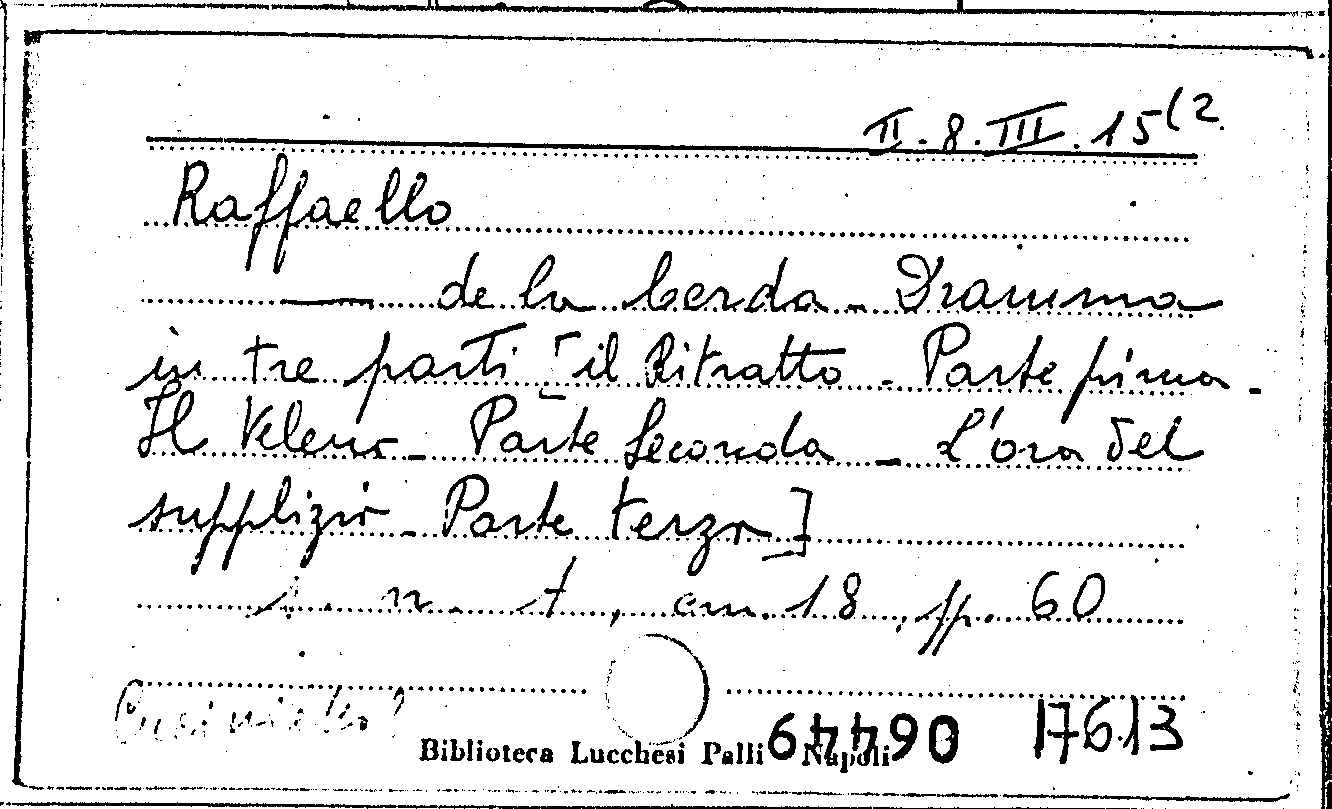 II. 8. III. 15(2.
Raffaello
—— de la Cerda - Dramma
in tre parti [il Ritratto - Parte prima -
Il Veleno - Parte Seconda - L'ora del
supplizio - Parte terza]
s. n. t, cm. 18, pp. 60
Biblioteca Lucchesi Palli Napoli
17613